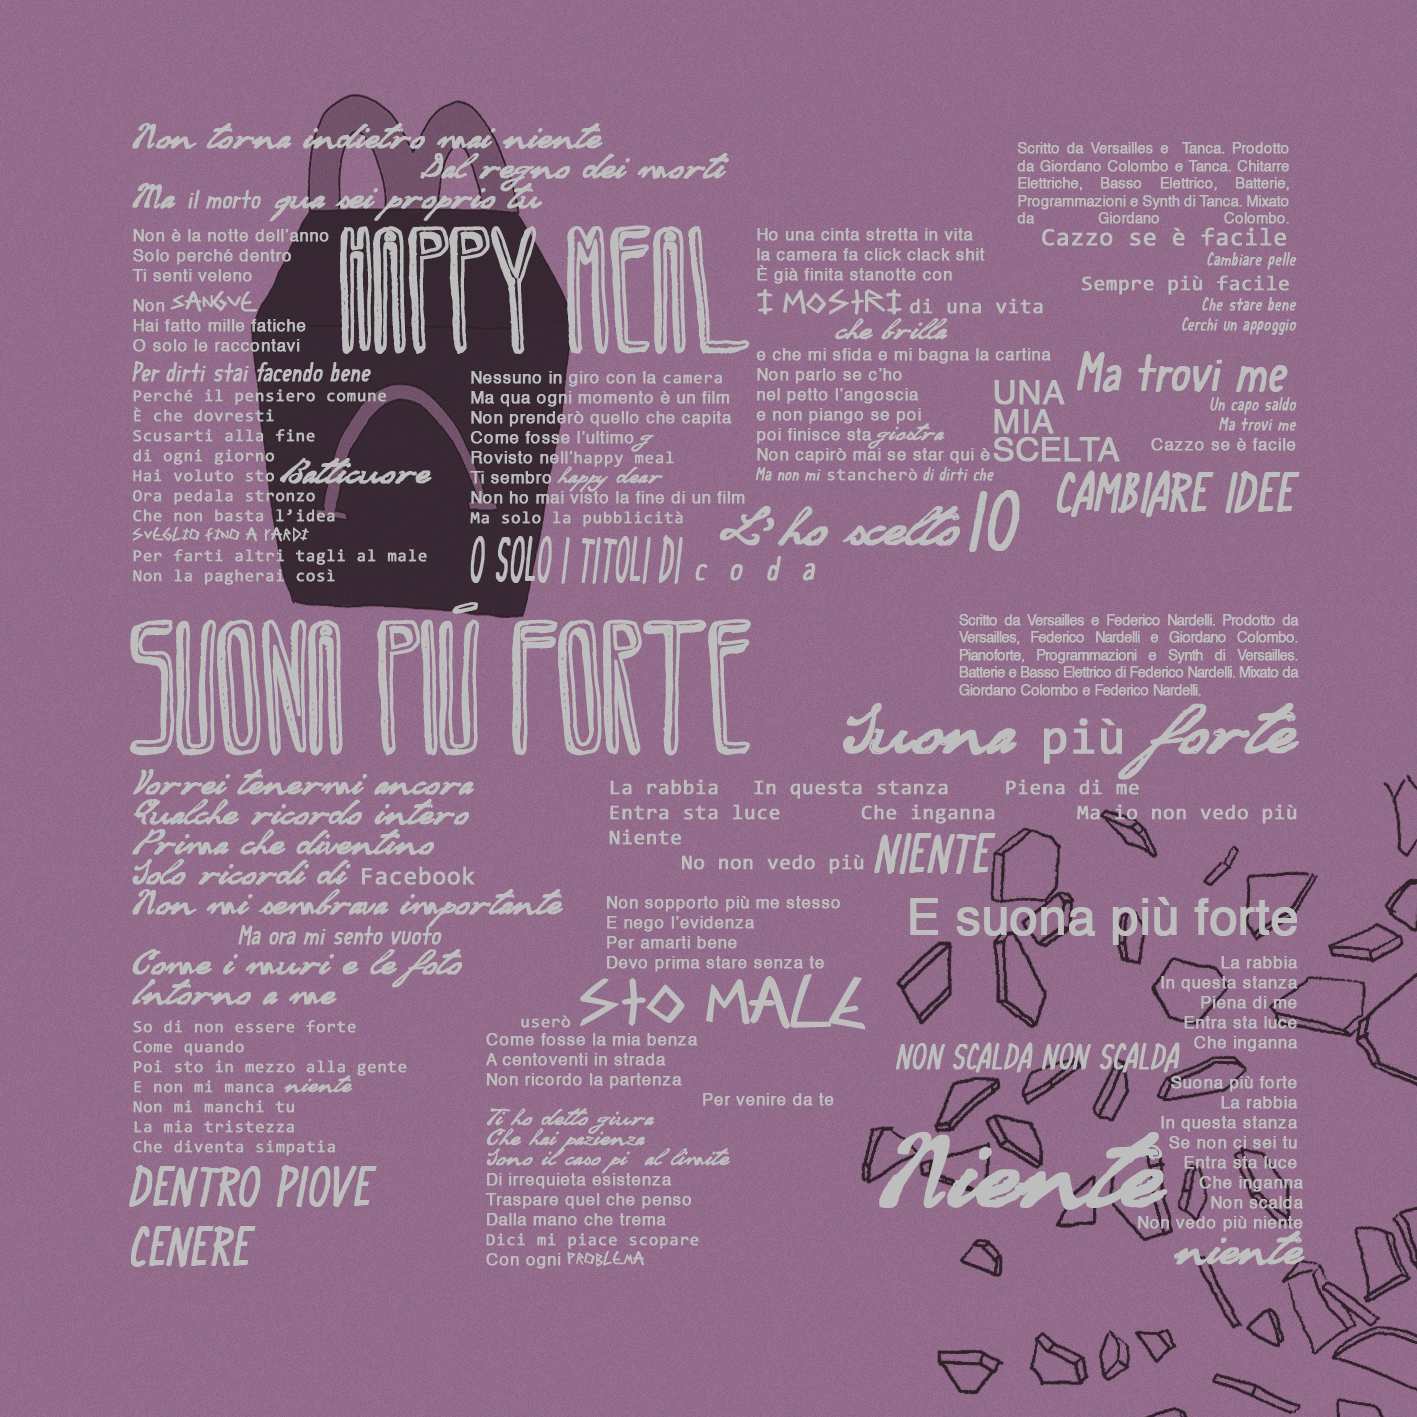 Non torna indietro mai niente
Dal regno dei morti
Ma il morto qua sei proprio tu
HAPPY MEAL
Non è la notte dell'anno
Solo perché dentro
Ti senti veleno
Non SANGUE
Hai fatto mille fatiche
O solo le raccontavi
Per dirti stai facendo bene
Perché il pensiero comune
È che dovresti
Scusarti alla fine
di ogni giorno
Hai voluto sto Batticuore
Ora pedala stronzo
Che non basta l'idea
SVEGLIO FINO A TARDI
Per farti altri tagli al male
Non la pagherai così
Nessuno in giro con la camera
Ma qua ogni momento è un film
Non prenderò quello che capita
Come fosse l'ultimo g
Rovisto nell'happy meal
Ti sembro happy dear
Non ho mai visto la fine di un film
Ma solo la pubblicità
O SOLO I TITOLI DI coda
Ho una cinta stretta in vita
la camera fa click clack shit
È già finita stanotte con
I MOSTRI di una vita
che brilla
e che mi sfida e mi bagna la cartina
Non parlo se c'ho
nel petto l'angoscia
e non piango se poi
poi finisce sta giostra
Non capirò mai se star qui è
UNA
MIA
SCELTA
Ma non mi stancherò di dirti che
L'ho scelto IO
Scritto da Versailles e Tanca. Prodotto
da Giordano Colombo e Tanca. Chitarre
Elettriche, Basso Elettrico, Batterie,
Programmazioni e Synth di Tanca. Mixato
da Giordano Colombo.
Cazzo se è facile
Cambiare pelle
Sempre più facile
Che stare bene
Cerchi un appoggio
Ma trovi me
Un capo saldo
Ma trovi me
Cazzo se è facile
CAMBIARE IDEE
SUONA PIÚ FORTE
Scritto da Versailles e Federico Nardelli. Prodotto da
Versailles, Federico Nardelli e Giordano Colombo.
Pianoforte, Programmazioni e Synth di Versailles.
Batterie e Basso Elettrico di Federico Nardelli. Mixato da
Giordano Colombo e Federico Nardelli.
Suona più forte
Vorrei tenermi ancora
Qualche ricordo intero
Prima che diventino
Solo ricordi di Facebook
Non mi sembrava importante
Ma ora mi sento vuoto
Come i muri e le foto
Intorno a me
So di non essere forte
Come quando
Poi sto in mezzo alla gente
E non mi manca niente
Non mi manchi tu
La mia tristezza
Che diventa simpatia
DENTRO PIOVE
CENERE
La rabbia In questa stanza Piena di me
Entra sta luce Che inganna Ma io non vedo più
Niente
No non vedo più NIENTE
Non sopporto più me stesso
E nego l'evidenza
Per amarti bene
Devo prima stare senza te
userò STO MALE
Come fosse la mia benza
A centoventi in strada
Non ricordo la partenza
Per venire da te
Ti ho detto giura
Che hai pazienza
Sono il caso pi al limite
Di irrequieta esistenza
Traspare quel che penso
Dalla mano che trema
Dici mi piace scopare
Con ogni PROBLEMA
E suona più forte
La rabbia
In questa stanza
Piena di me
Entra sta luce
Che inganna
NON SCALDA NON SCALDA
Suona più forte
La rabbia
In questa stanza
Se non ci sei tu
Entra sta luce
Che inganna
Non scalda
Non vedo più niente
Niente
niente